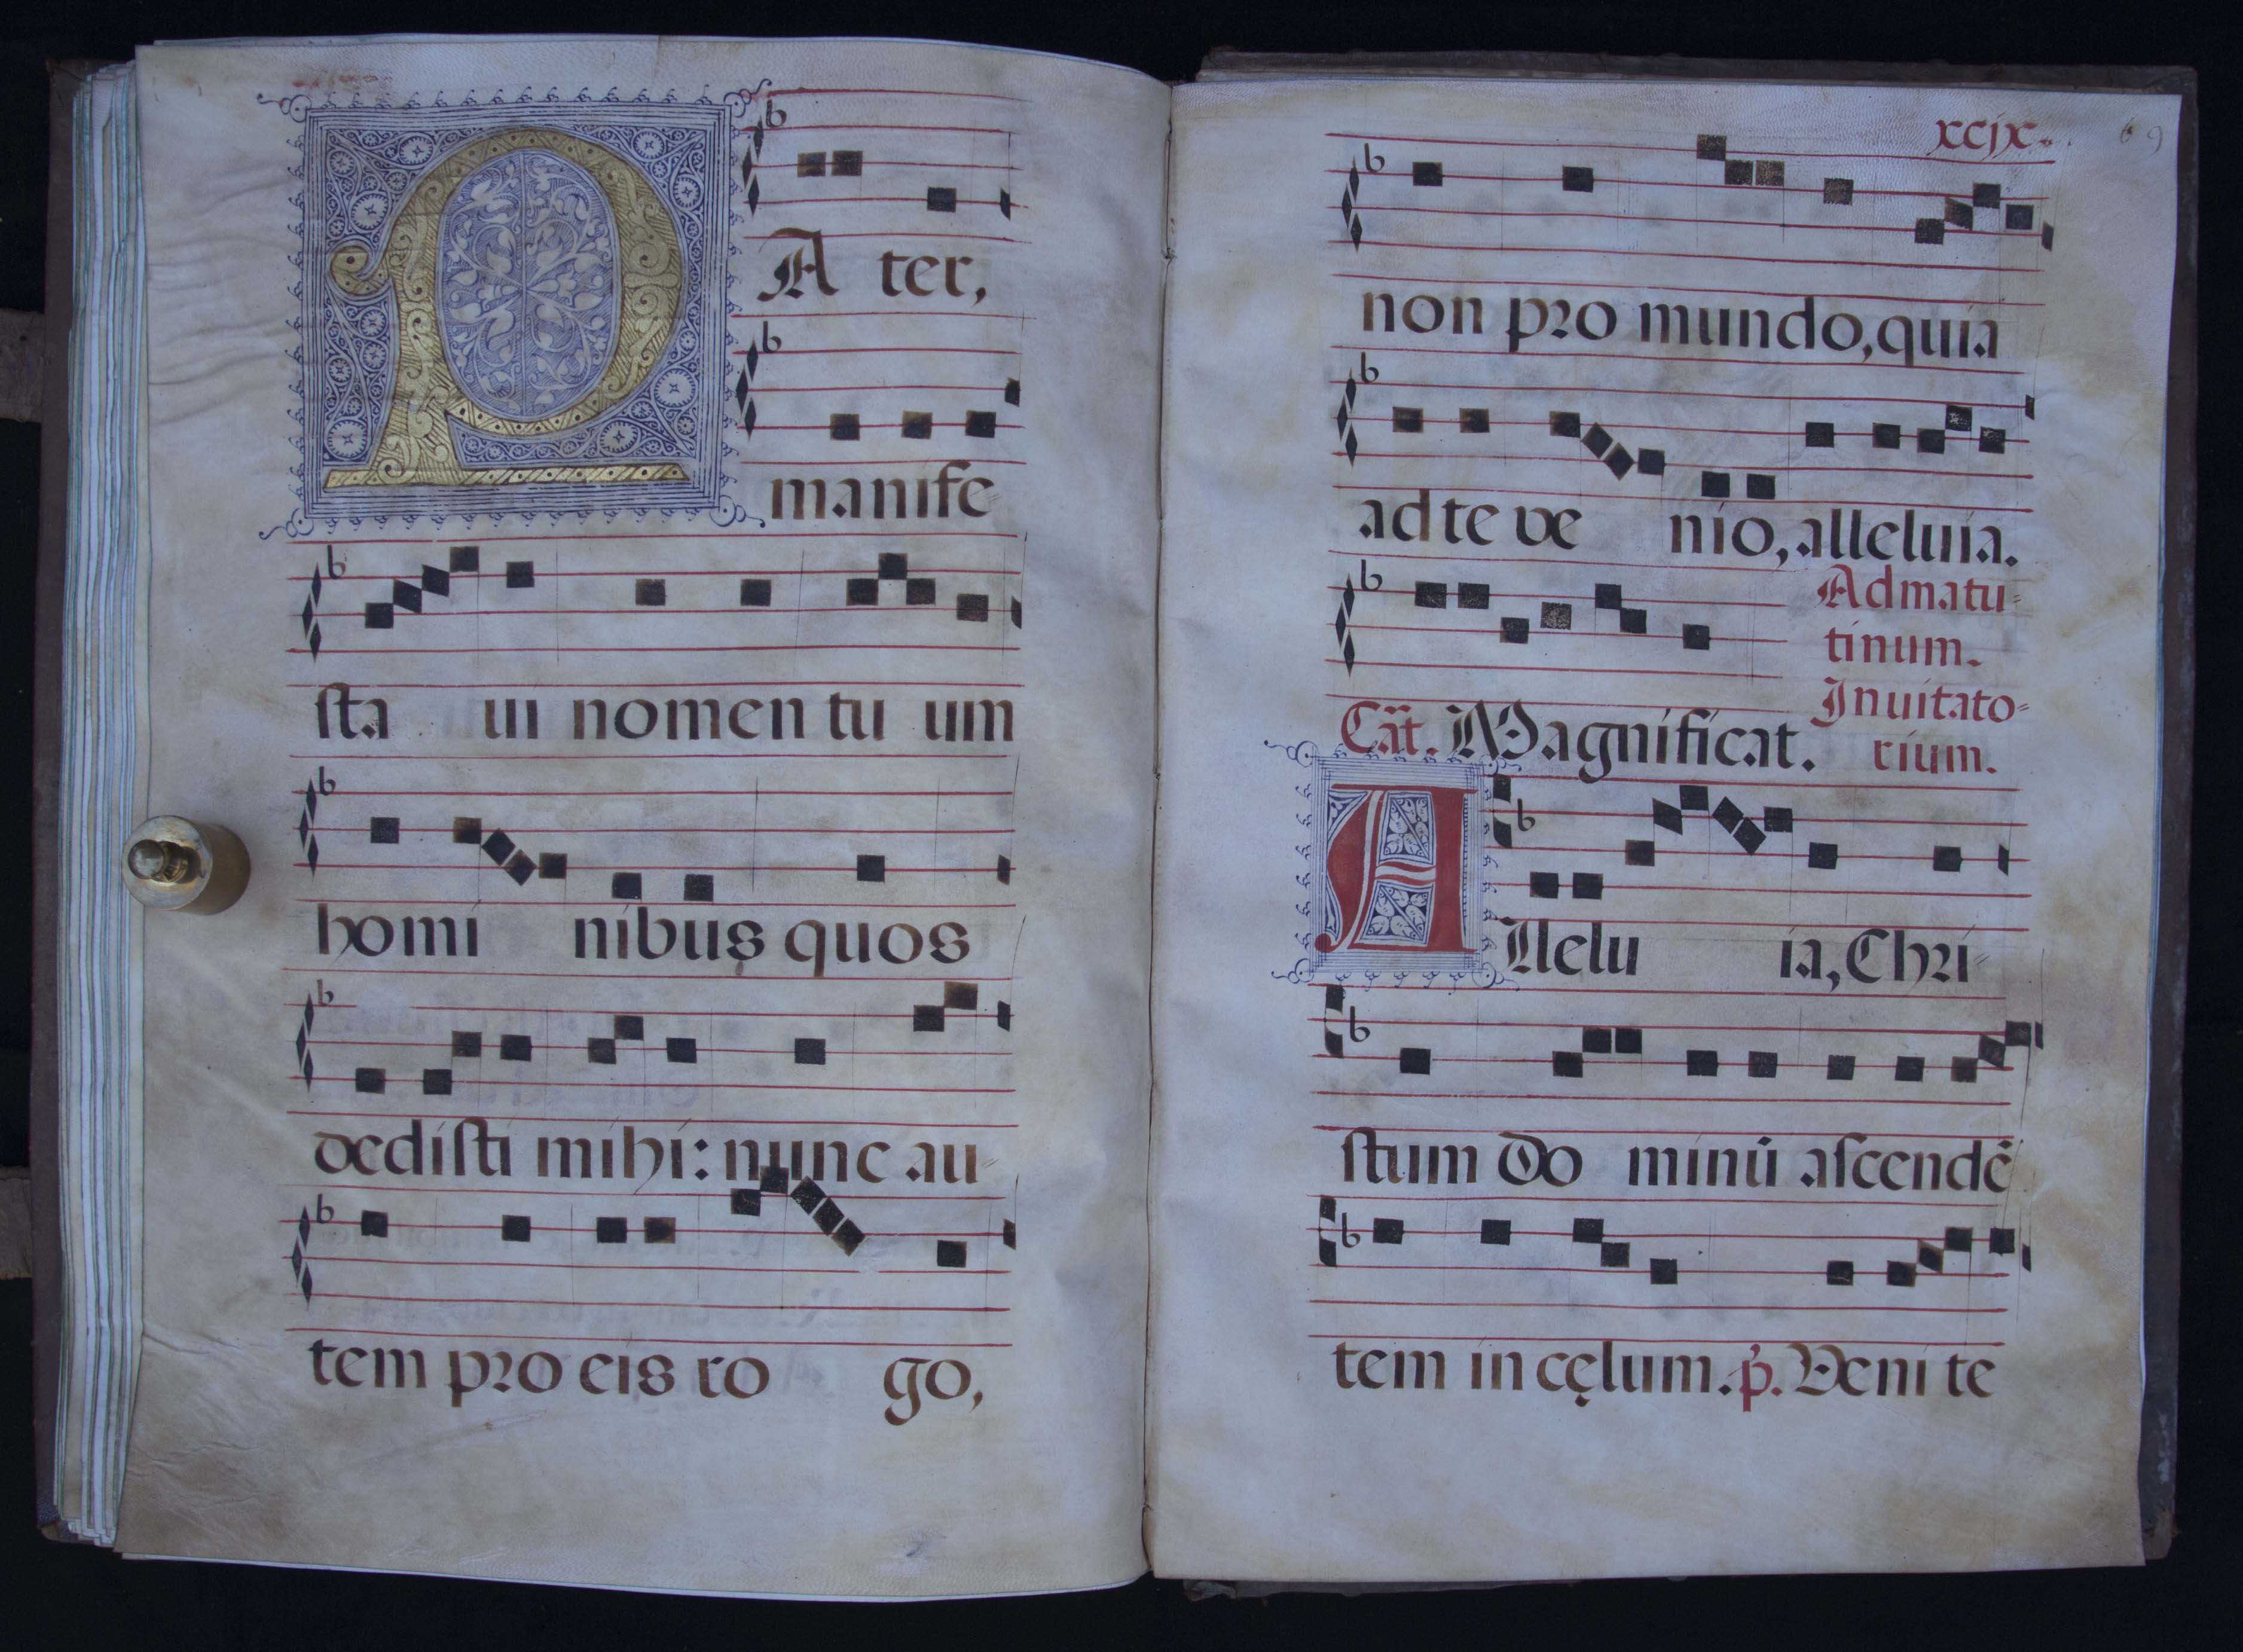 PAter,
manife-
sta ui nomen tuum
homi nibus quos
dedisti mihi: nunc au-
tem pro eis ro go,
xcjx.
69
non pro mundo, quia
ad te ve nio, alleluia.
Ad matu-
tinum.
Inuitato-
rium.
Cãt. Magnificat.
Allelu ia, Chri-
stum Do minū ascendē
tem in cęlum. p̃. Venite